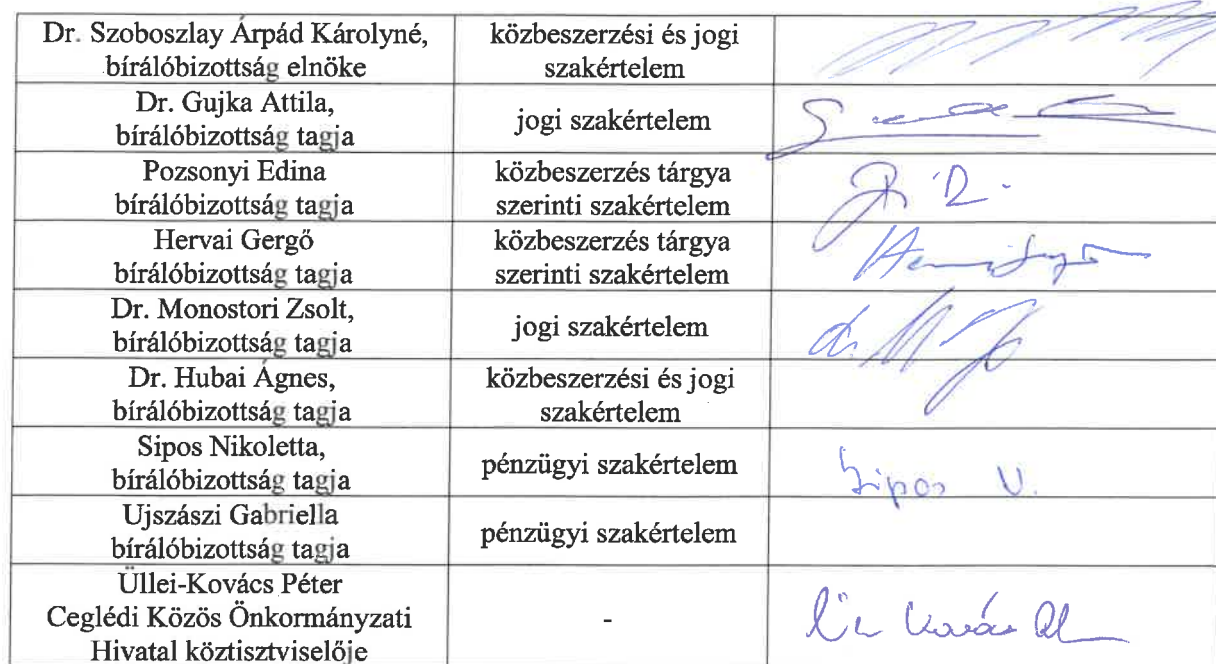 Dr. Szoboszlay Árpád Károlyné,
bírálóbizottság elnöke
közbeszerzési és jogi
szakértelem
Dr. Gujka Attila,
bírálóbizottság tagja
jogi szakértelem
Pozsonyi Edina
bírálóbizottság tagja
közbeszerzés tárgya
szerinti szakértelem
Hervai Gergő
bírálóbizottság tagja
közbeszerzés tárgya
szerinti szakértelem
Dr. Monostori Zsolt,
bírálóbizottság tagja
jogi szakértelem
dr.
Dr. Hubai Ágnes,
bírálóbizottság tagja
közbeszerzési és jogi
szakértelem
Sipos Nikoletta,
bírálóbizottság tagja
pénzügyi szakértelem
Sipos N.
Ujszászi Gabriella
bírálóbizottság tagja
pénzügyi szakértelem
Üllei-Kovács Péter
Ceglédi Közös Önkormányzati
Hivatal köztisztviselője
-
Kovács